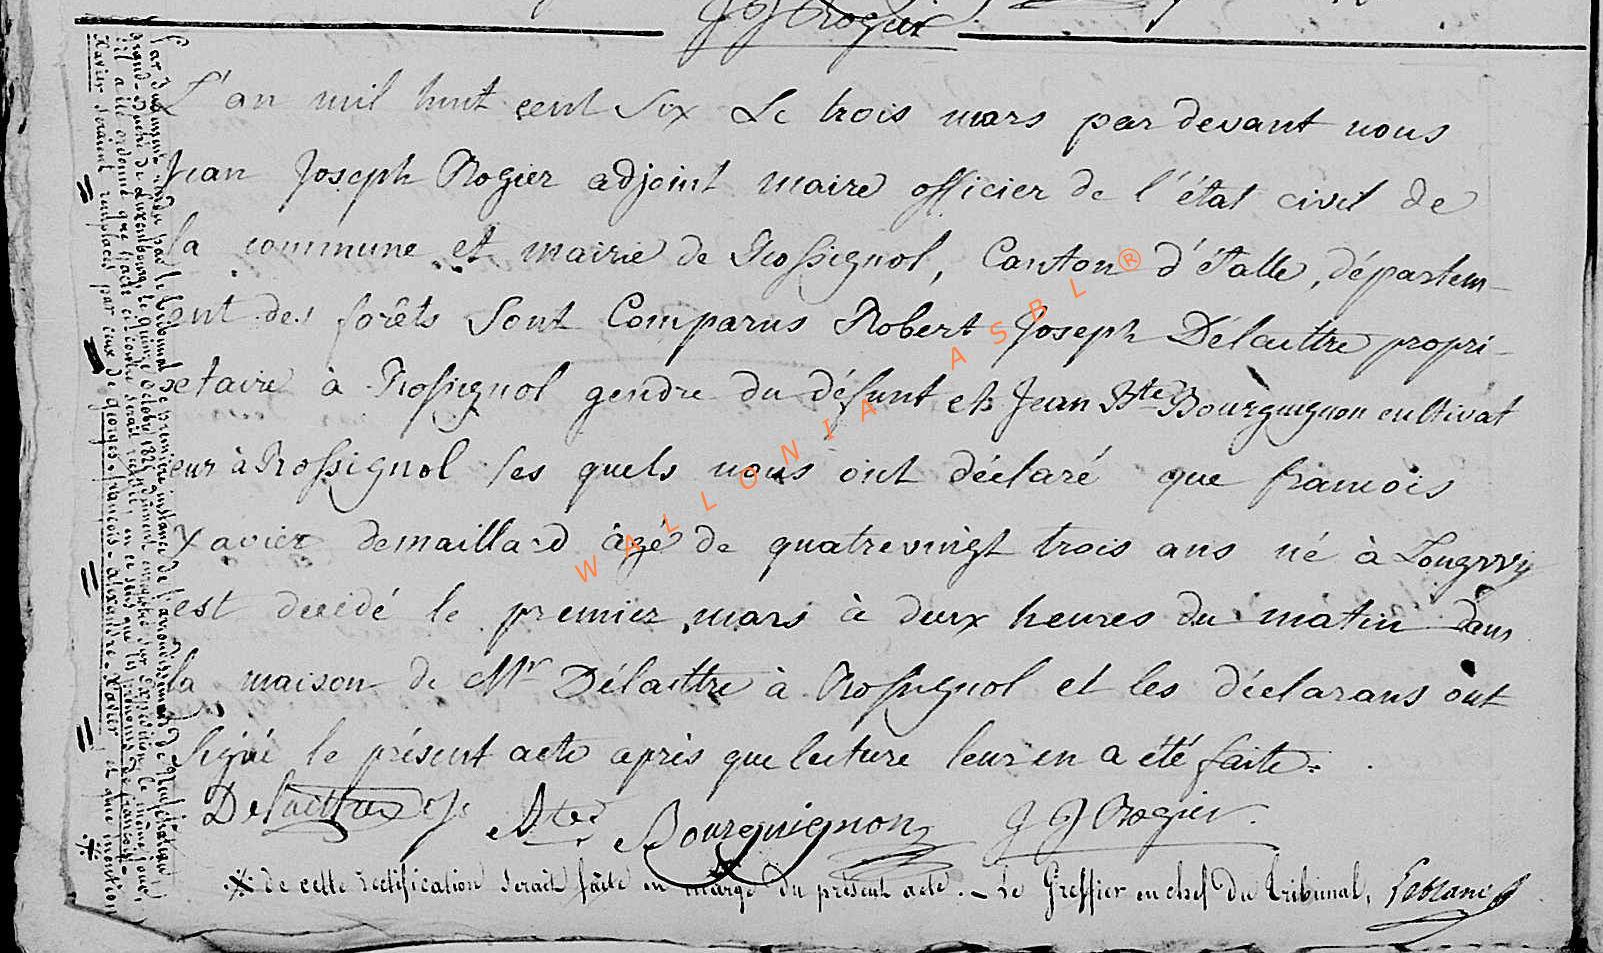 J J Rogier
L'an mil huit cent Six Le trois mars par devant nous
Jean Joseph Rogier adjoint maire officier de l'état civil de
la commune et mairie de Rossignol, Canton d'Etalle, départem-
ent des forêts Sont Comparus Robert Joseph Délaittre propri-
etaire à Rossignol gendre du défunt et Jean Bte Bourguignon cultivat
eur à Rossignol les quels nous ont déclaré que francois
Xavier demaillard âgé de quatrevingt trois ans né à Longwy
est décédé le premier mars à deux heures du matin dans
la maison de Mr Délaittre à Rossignol et les déclarans ont
signé le présent acte après que lecture leur en a été faite.
Delaittre Bte Bourguignon J J Rogier
Par Jugement rendu par le tribunal de première instance de l'arrondissement de Neufchâteau
Grand-Duché de Luxembourg, le quinze octobre 182 enregistré sur expédition le même jour,
il a été ordonné que l'acte ci-contre serait rectifié en ce sens que les prénoms de francois-
Xavier seraient remplacés par ceux de georges-francois-alexandre-Xavier et que mention
※ de cette rectification serait faite en marge du présent acte. - Le Greffier en chef du tribunal,
WALLONIA ASBL ®